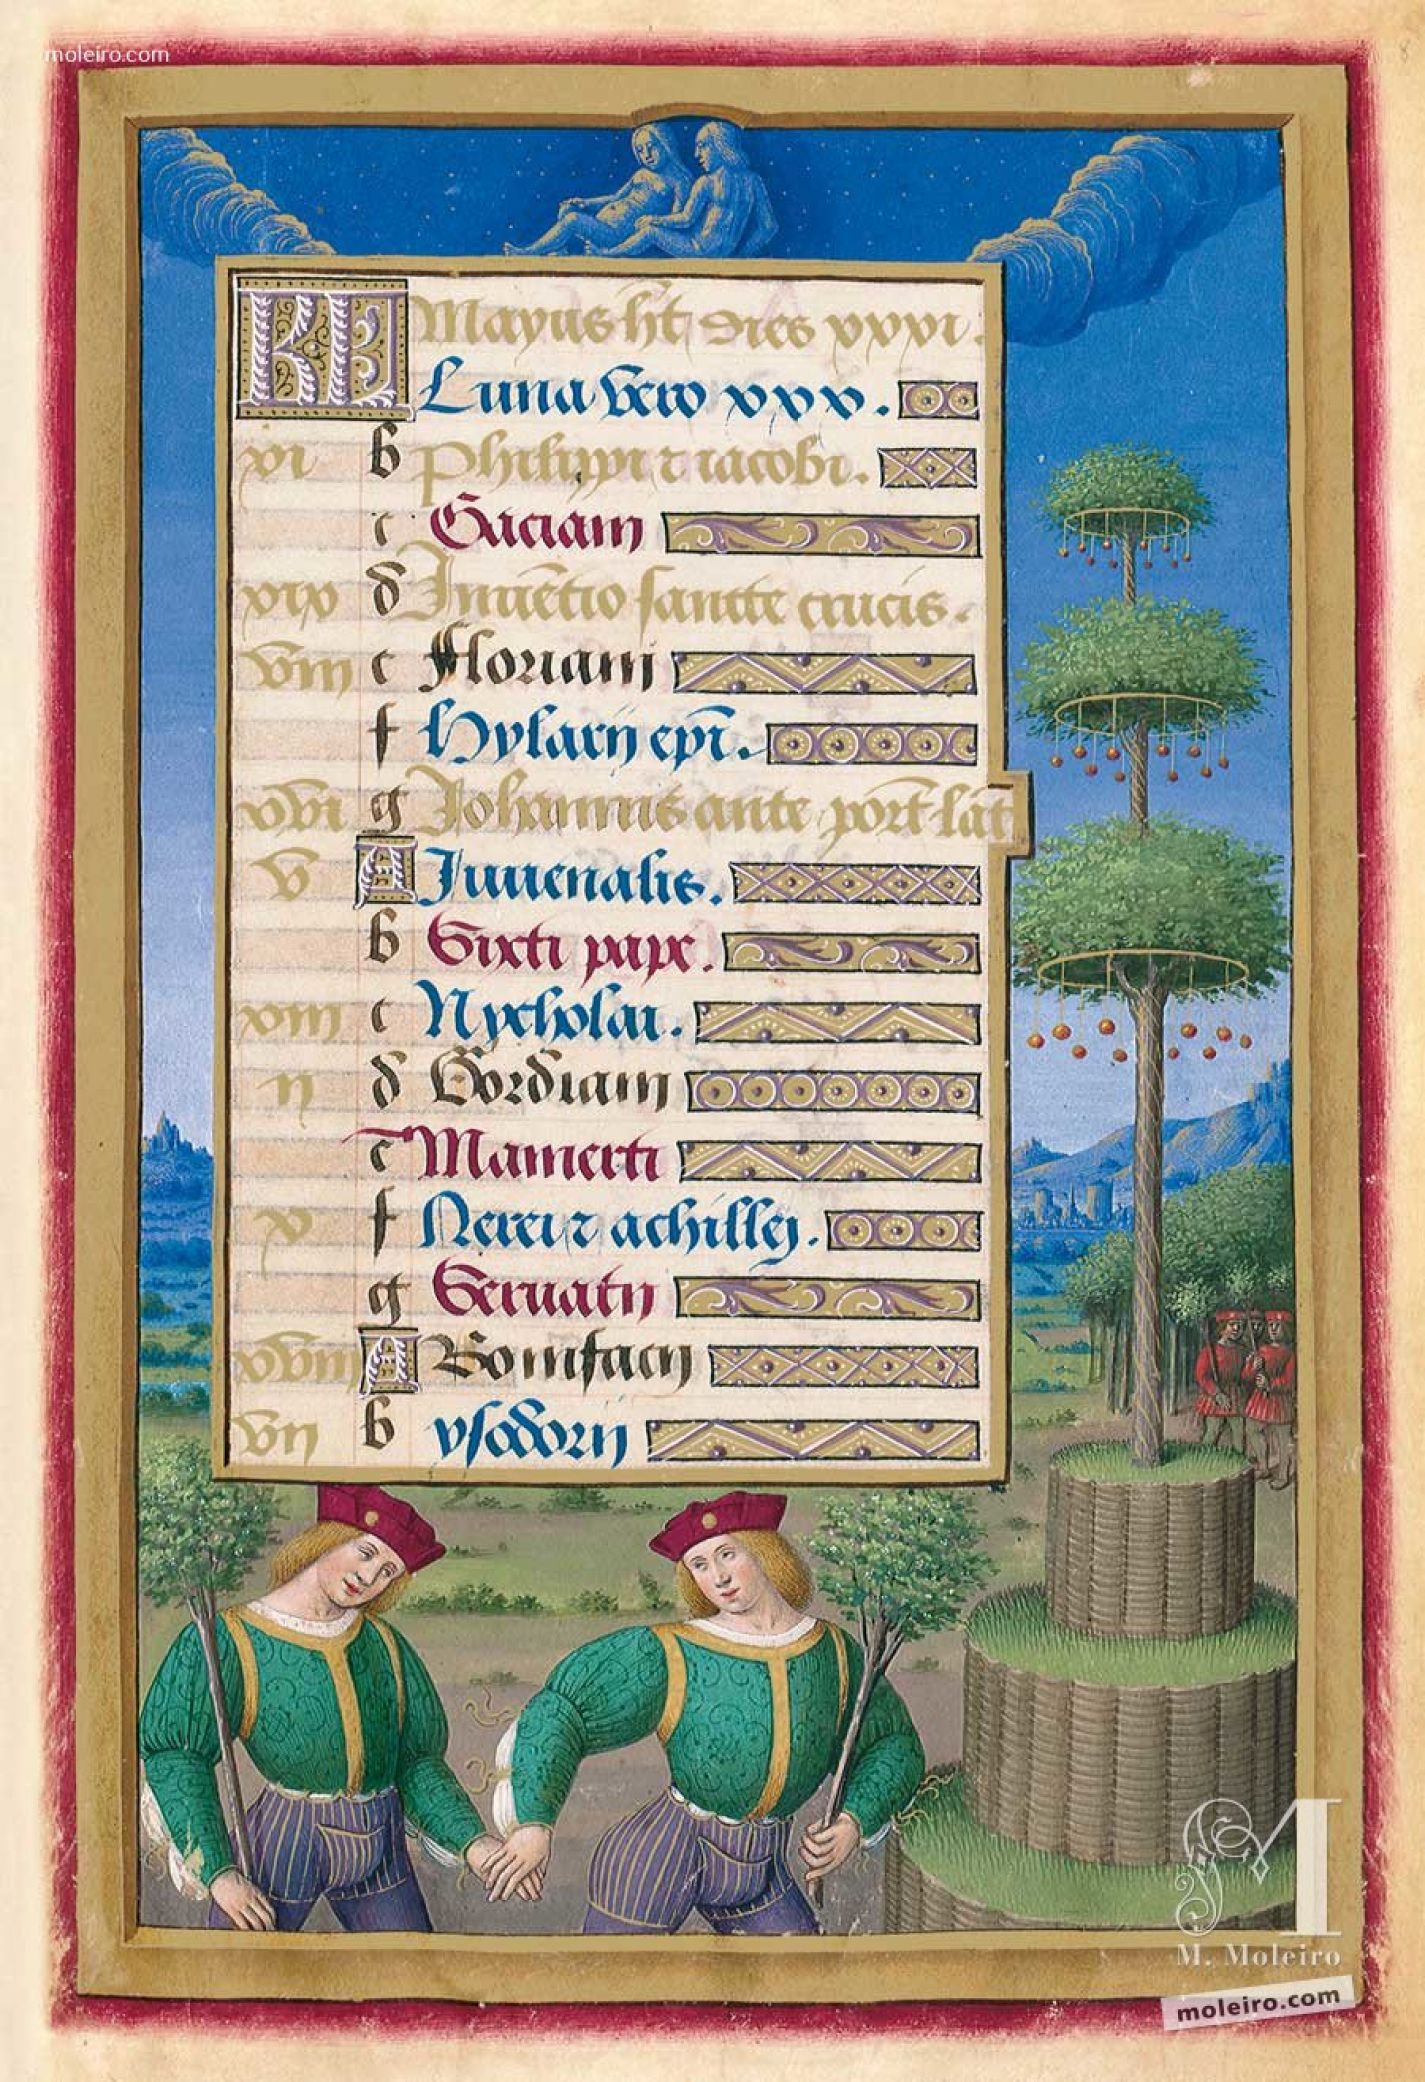 moleiro.com
KL Mayus ht dies xxxi.
Luna vero xxx.
xi b Philippi ⁊ iacobi.
c Gaciani
xix d Inuẽtio sancte crucis.
viii e Floriani
f Hylarij epĩ.
xvi g Johannis ante port lat
v A Iuuenalis.
b Sixti pape.
xiii c Nycholai.
ii d Gordiani
e Mamerti
x f Nerei ⁊ achillej.
g Seruatij
xviii A Bonifacij
vii b ysodorij
M
M. Moleiro
moleiro.com